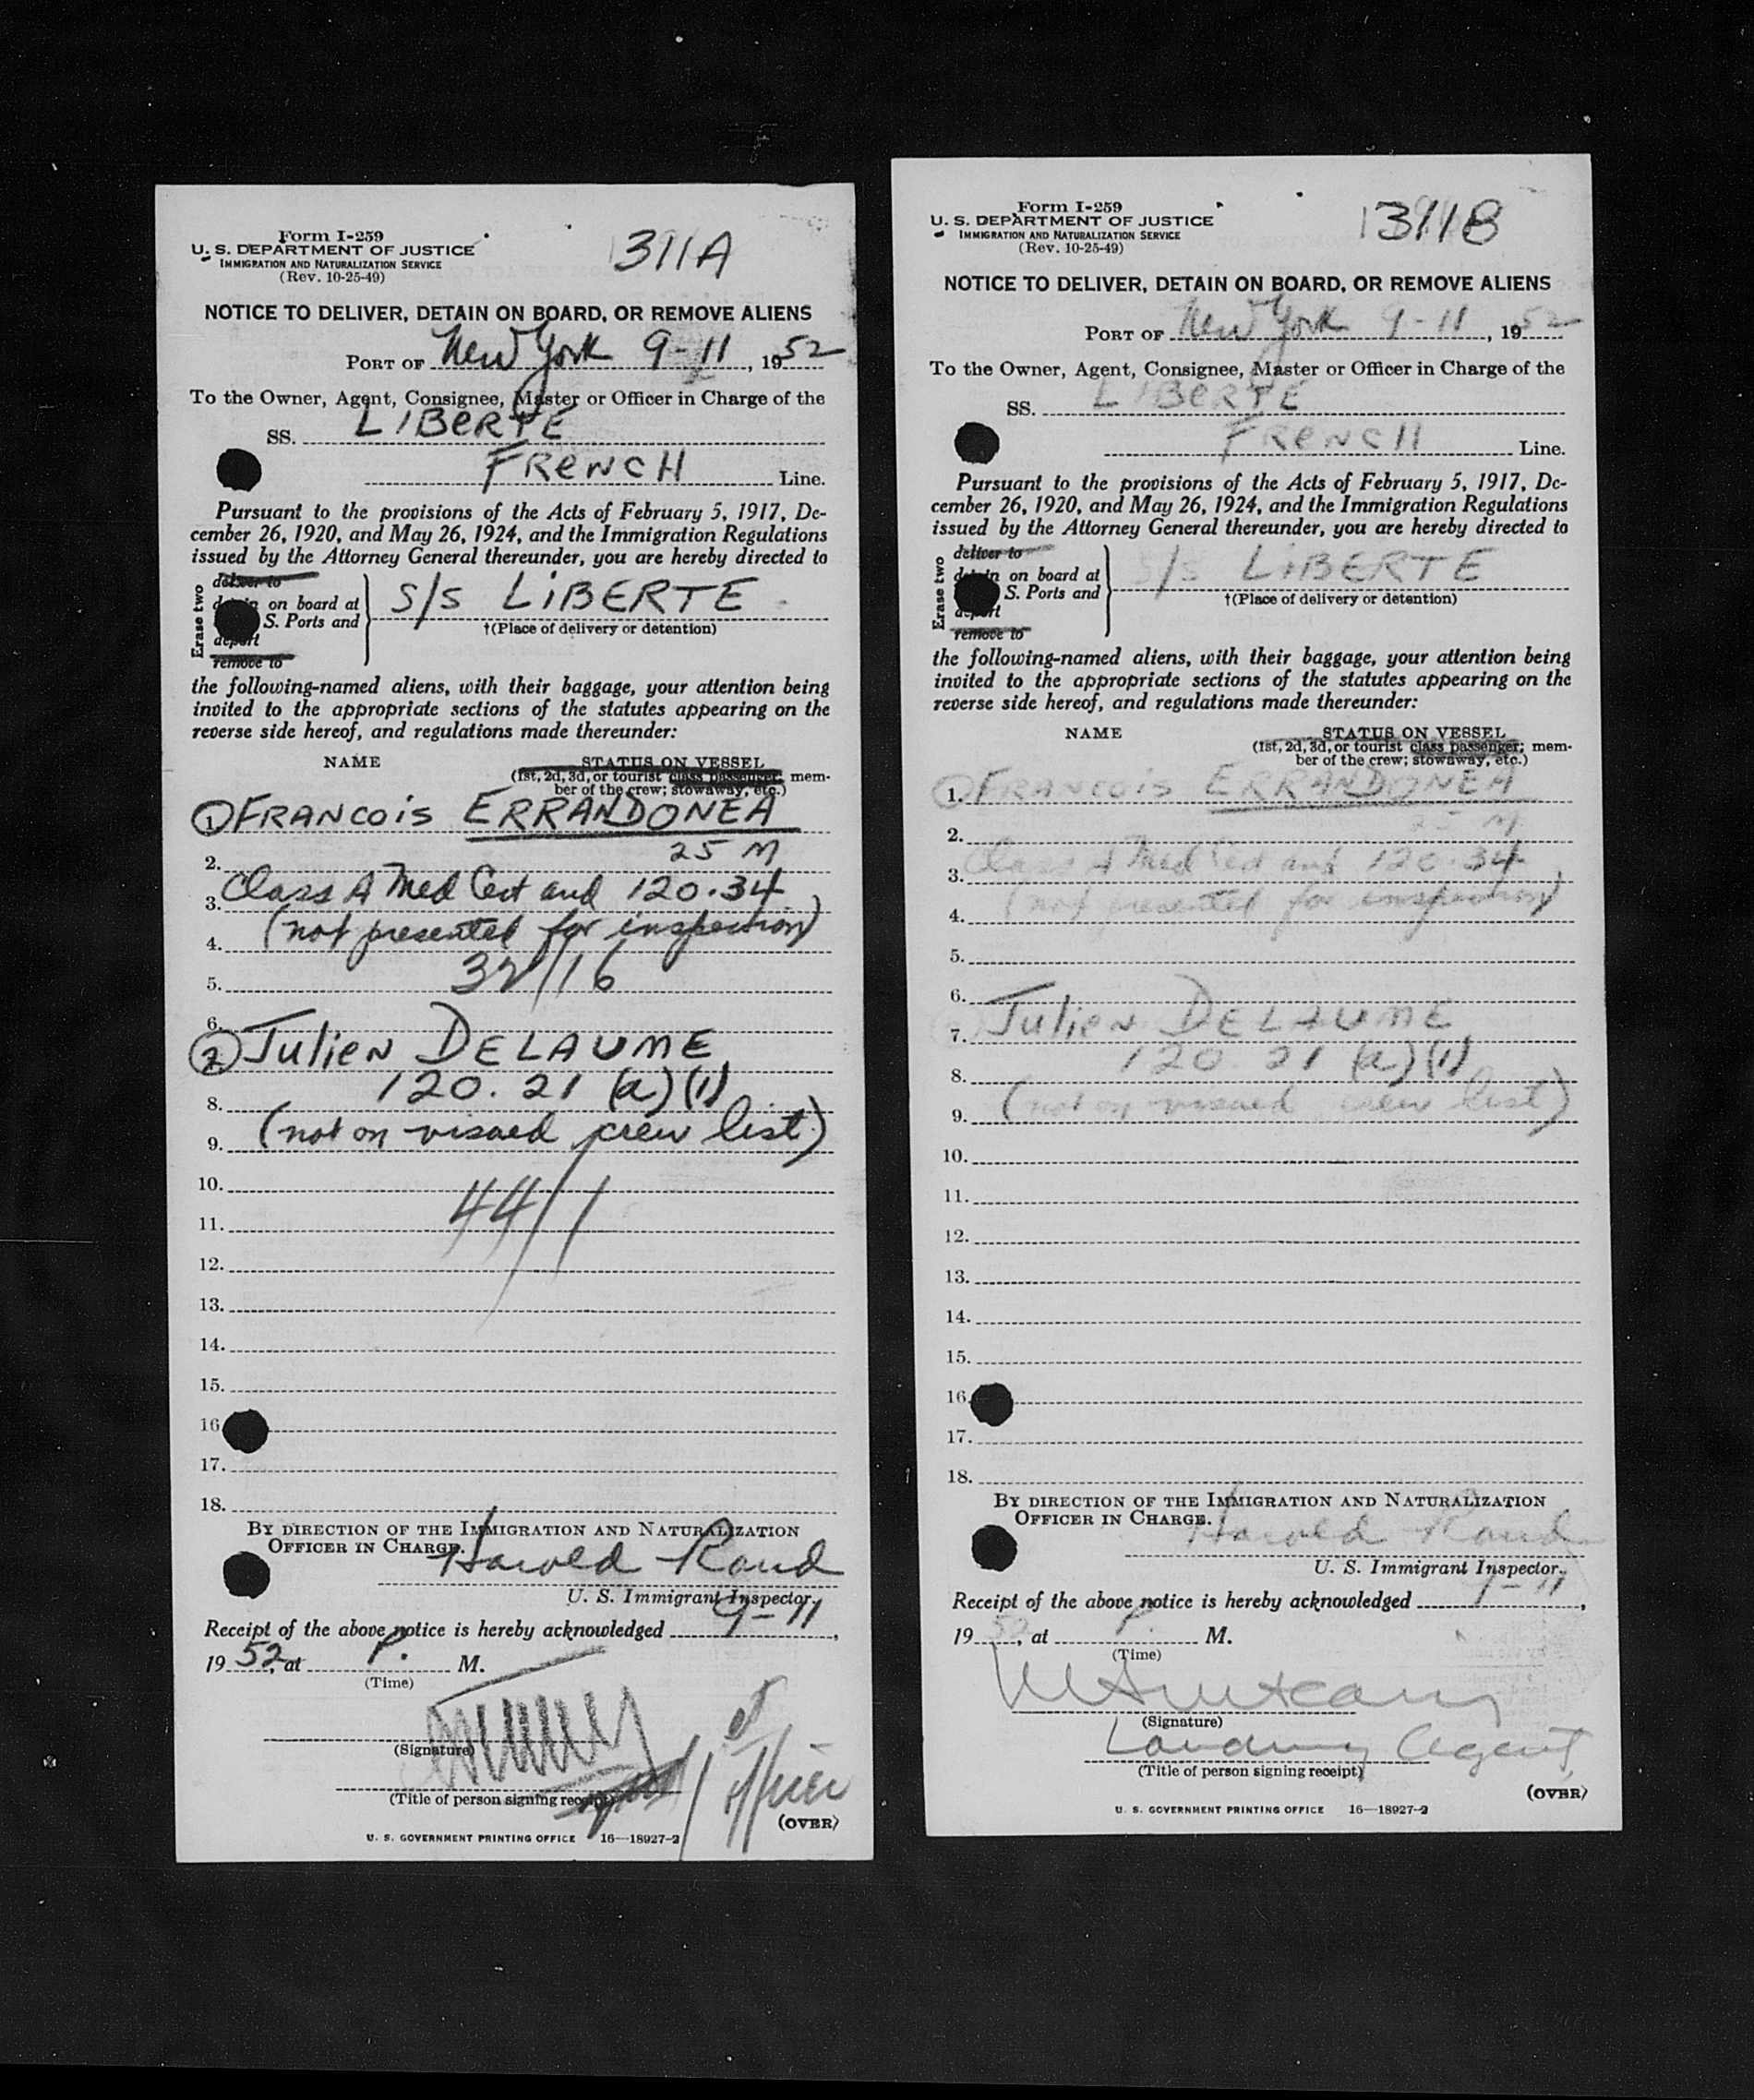 Form I-259
U. S. DEPARTMENT OF JUSTICE
IMMIGRATION AND NATURALIZATION SERVICE
(Rev. 10-25-49)
311A
NOTICE TO DELIVER, DETAIN ON BOARD, OR REMOVE ALIENS
PORT OF New York 9-11, 1952
To the Owner, Agent, Consignee, Master or Officer in Charge of the
SS. LIBERTE
FRENCH Line.
Pursuant to the provisions of the Acts of February 5, 1917, De-
cember 26, 1920, and May 26, 1924, and the Immigration Regulations
issued by the Attorney General thereunder, you are hereby directed to
Erase two
deliver to
on board at
S. Ports and
deport
remove to
S/S LIBERTE
†(Place of delivery or detention)
the following-named aliens, with their baggage, your attention being
invited to the appropriate sections of the statutes appearing on the
reverse side hereof, and regulations made thereunder:
NAME STATUS ON VESSEL
(1st, 2d, 3d, or tourist class passenger; mem-
ber of the crew; stowaway, etc.)
1. FRANCOIS ERRANDONEA
2. 25 M
3. Class A Med Cert and 120.34
4. (not presented for inspection)
5. 32/16
6.
7. Julien DELAUME
8. 120.21 (a)(1)
9. (not on visaed crew list)
10.
11. 44/1
12.
13.
14.
15.
16
17.
18.
BY DIRECTION OF THE IMMIGRATION AND NATURALIZATION
OFFICER IN CHARGE.
Harold Rand
U. S. Immigrant Inspector.
Receipt of the above notice is hereby acknowledged 9-11,
1952, at P. M.
(Time)
(Signature)
(Title of person signing receipt)
(OVER)
U. S. GOVERNMENT PRINTING OFFICE 16—18927-2
Form I-259
U. S. DEPARTMENT OF JUSTICE
IMMIGRATION AND NATURALIZATION SERVICE
(Rev. 10-25-49)
311B
NOTICE TO DELIVER, DETAIN ON BOARD, OR REMOVE ALIENS
PORT OF New York 9-11, 1952
To the Owner, Agent, Consignee, Master or Officer in Charge of the
SS. LIBERTE
FRENCH Line.
Pursuant to the provisions of the Acts of February 5, 1917, De-
cember 26, 1920, and May 26, 1924, and the Immigration Regulations
issued by the Attorney General thereunder, you are hereby directed to
Erase two
deliver to
on board at
S. Ports and
deport
remove to
S/S LIBERTE
†(Place of delivery or detention)
the following-named aliens, with their baggage, your attention being
invited to the appropriate sections of the statutes appearing on the
reverse side hereof, and regulations made thereunder:
NAME STATUS ON VESSEL
(1st, 2d, 3d, or tourist class passenger; mem-
ber of the crew; stowaway, etc.)
1. FRANCOIS ERRANDONEA
2. 25 M
3. Class A Med Cert and 120.34
4. (not presented for inspection)
5.
6.
7. Julien DELAUME
8. 120.21 (a)(1)
9. (not on visaed crew list)
10.
11.
12.
13.
14.
15.
16.
17.
18.
BY DIRECTION OF THE IMMIGRATION AND NATURALIZATION
OFFICER IN CHARGE.
Harold Rand
U. S. Immigrant Inspector.
Receipt of the above notice is hereby acknowledged 9-11,
1952, at P. M.
(Time)
(Signature)
Landing Agent
(Title of person signing receipt)
(OVER)
U. S. GOVERNMENT PRINTING OFFICE 16—18927-2